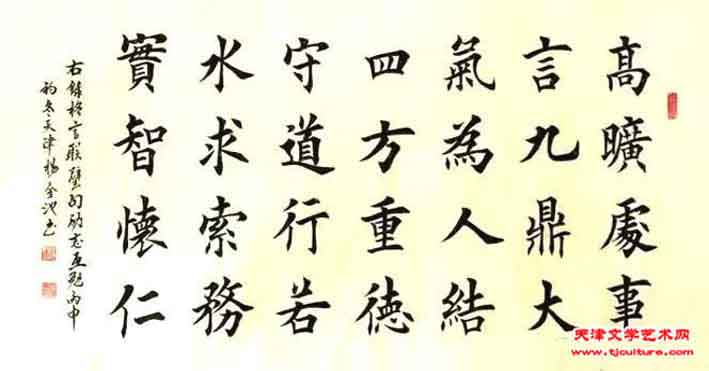 高曠處事
言九鼎大
氣為人結
四方重德
守道行若
水求索務
實智懷仁
右錄格言联璧句励志互勉丙申
初冬天津楊金池书
天津文学艺术网
www.tjculture.com